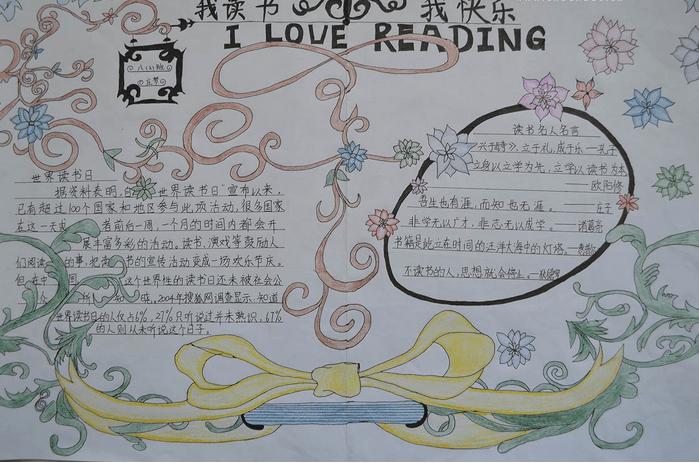 我读书 我快乐
I LOVE READING
八(3)班
世界读书日
据资料表明,自"世界读书日"宣布以来,
已有超过100个国家和地区参与此项活动,很多国家
在这一天或者前后一周、一个月的时间内都会开
展丰富多彩的活动。读书、演戏等鼓励人
们阅读的事,把读书的宣传活动变成一场欢乐节庆。
但在中国,这个世界性的读书日还未被社会公
2004年搜狐网调查显示,知道
世界读书日的人仅占6%,27%只听说过并未熟识,67%
的人则从未听说这个日子。
读书名人名言
兴于《诗》,立于礼,成于乐——孔子
立身以立学为先,立学以读书为本
——欧阳修
吾生也有涯,而知也无涯。——庄子
非学无以广才,非志无以成学。——诸葛亮
书籍是屹立在时间的汪洋大海中的灯塔。
不读书的人,思想就会停止。